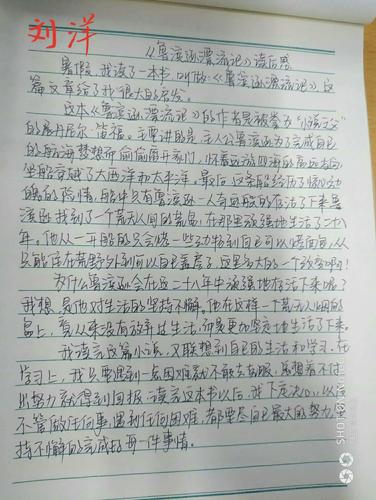 刘洋
《鲁滨逊漂流记》读后感
暑假，我读了一本书，叫做《鲁滨逊漂流记》这
篇文章给了我很大的启发。
这本《鲁滨逊漂流记》的作者是被誉为"小说之父"
的展丹尼尔·笛福。主要讲的是，主人公鲁滨逊为了完成自己
的航海梦想而偷偷离开家门，怀着远游四海的高远志向
坐船穿越了大西洋和太平洋。最后，这条船经历了惊心动
魄的险情，船中只有鲁滨逊一人奇迹般的存活了下来鲁
滨逊找到了个荒无人间的荒岛，在那里顽强地生活了二十八
年。他从一开始的只会烤一些动物到自己可以烤面包，从
只能住在荒野外到可以自己盖房子，这是多大的一个改变啊！
为什么鲁滨逊会在这二十八年中顽强地存活下来呢？
我想，是他对生活的坚持不懈。他在这样一个荒无人烟的
岛上，着从来没有放弃过生活，而是更加坚定地生活了下来。
我读完这篇小说，又联想到自己的生活和学习。在
学习上，我只要遇到一点困难就不敢去克服，总想着不付
出努力就得到回报。读完这本书以后，我下定决心，以后
不管做任何事，遇到任何困难，都要尽自己最大的努力，坚
持不懈的完成好每一件事情。